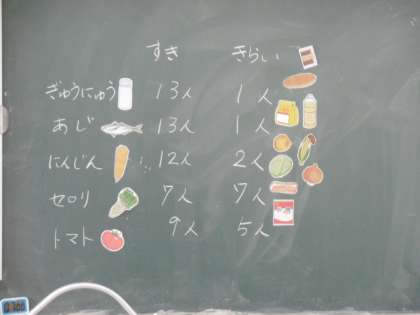 すき きらい
ぎゅうにゅう 13人 1人
あじ 13人 1人
にんじん 12人 2人
セロリ 7人 7人
トマト 9人 5人